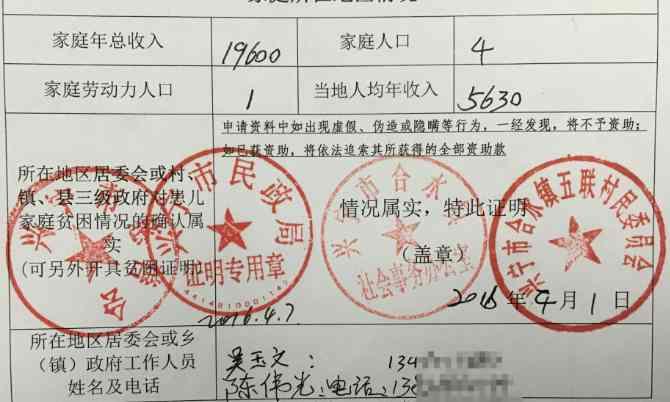 家庭年总收入 19600 家庭人口 4
家庭劳动力人口 1 当地人均年收入 5630
申请资料中如出现虚假、伪造或隐瞒等行为，一经发现，将不予资助；
如已获资助，将依法追索其所获得的全部资助款
所在地区居委会或村、
镇、县三级政府对患儿
家庭贫困情况的确认属
实
(可另外开具贫困证明)
情况属实，特此证明
（盖章）
市民政局
证明专用章
兴宁市合水镇
社会事务办公室
兴宁市合水镇五联村民委员会
2016年4月1日
2016.4.7
所在地区居委会或乡
（镇）政府工作人员
姓名及电话
吴玉文： 134
陈伟光：电话：13